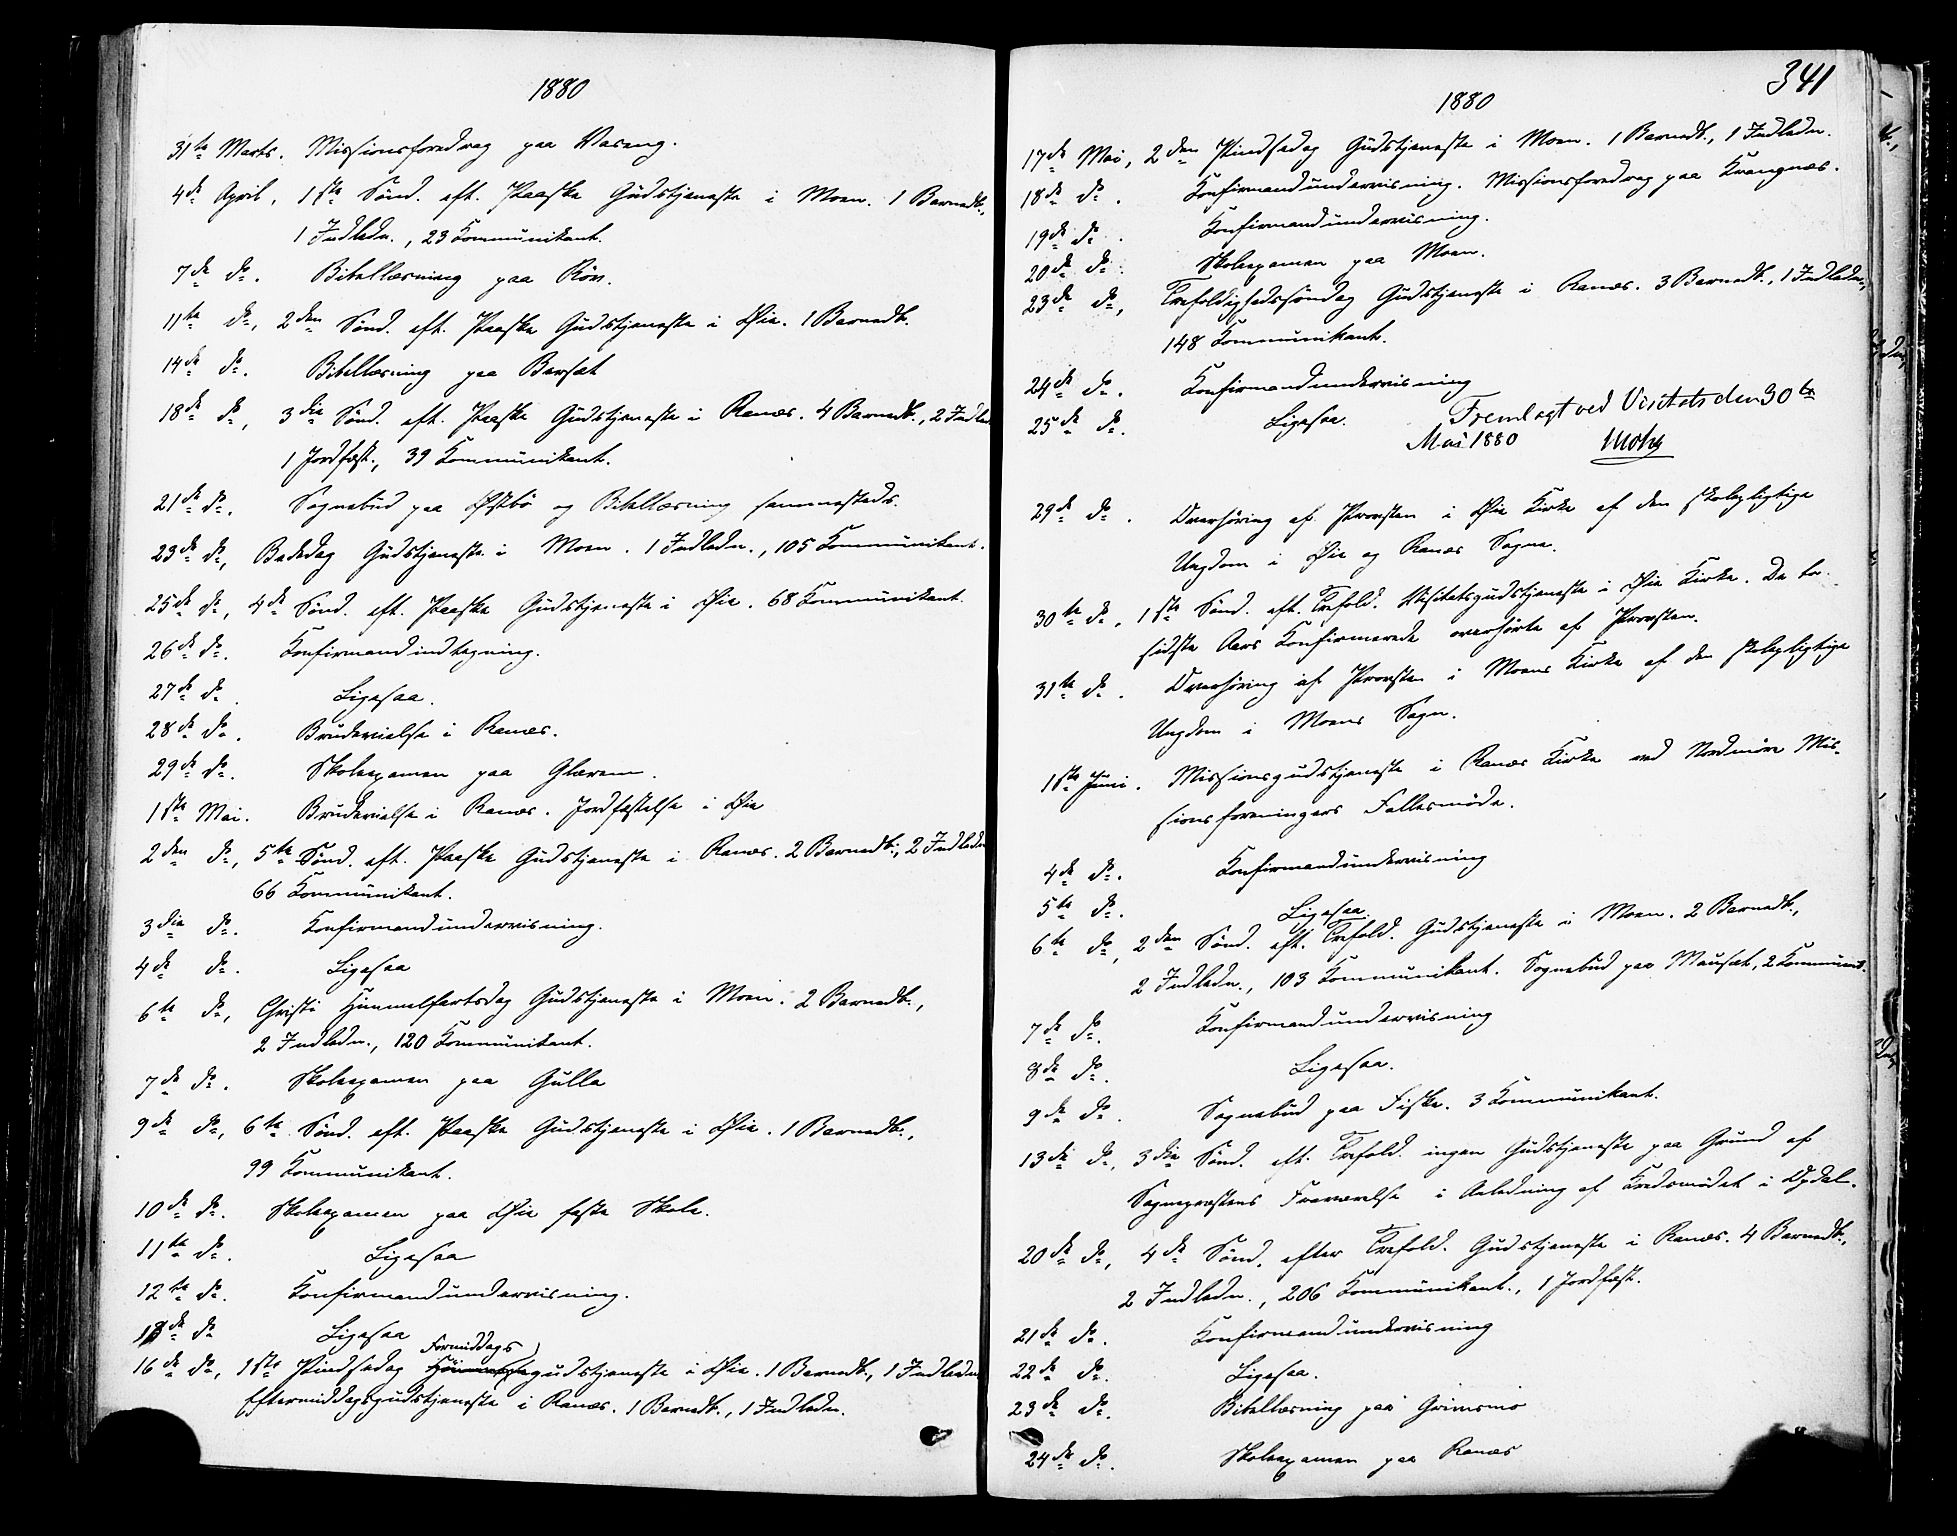 1880
31te Marts. Missionsforedrag paa Vaseng.
4de April, 1ste Sønd. eft. Paaske Gudstjeneste i Moen. 1 Barnedb.,
1 Indledn., 23 Kommunikant.
7de do. Bibellæsning paa Røv.
11te do, 2den Sønd. eft. Paaske Gudstjeneste i Øie. 1 Barnedb.
14de do. Bibellæsning paa Bævfat
18de do, 3die Sønd. eft. Paaske Gudstjeneste i Ranæs. 4 Barnedb., 2 Indled
1 Jordfæst., 39 Kommunikant.
21de do. Sognebud paa Østbø og Bibellæsning sammesteds.
23de do, Bededag Gudstjeneste i Moen. 1 Indledn., 105 Kommunikant.
25de do, 4de Sønd. eft. Paaske Gudstjeneste i Øie. 68 Kommunikant.
26de do. Konfirmandindtagning.
27de do. Ligesaa.
28de do. Brudevielse i Ranæs.
29de do. Skoleexamen paa Glærem.
1ste Mai. Brudevielse i Ranæs. Jordfæstelse i Øie
2den do, 5te Sønd. eft. Paaske Gudstjeneste i Ranæs. 2 Barnedb., 2 Indledn
66 Kommunikant.
3die do. Konfirmandundervisning.
4de do. Ligesaa
6te do, Christi Himmelfartsdag Gudstjeneste i Moen. 2 Barnedb.,
2 Indledn., 120 Kommunikant.
7de do. Skoleexamen paa Gulla
9de do, 6te Sønd. eft. Paaske Gudstjeneste i Øie. 1 Barnedb.,
99 Kommunikant.
10de do. Skoleexamen paa Øie faste Skole.
11te do. Ligesaa
12te do. Konfirmandundervisning.
13de do Ligesaa
Formiddags
16de do, 1ste Pindsedag gudstjeneste i Øie. 1 Barnedb., 1 Indledn
Eftermiddagsgudstjeneste i Ranæs. 1 Barnedb., 1 Indledn.
341
1880
17de Mai, 2den Pindsedag Gudstjeneste i Moen. 1 Barnedb., 1 Indledn.
18de do. Konfirmandundervisning. Missionsforedrag paa Kvangnæs.
19de do. Konfirmandundervisning.
20de do. Skoleexamen paa Moen.
23de do, Trefoldighedssøndag Gudstjeneste i Ranæs. 3 Barnedb., 1 Indledn.,
148 Kommunikant.
24de do. Konfirmandundervisning
25de do. Ligesaa.
Fremlagt ved Visitats den 30te
Mai 1880
29de do. Overhøring af Provsten i Øie Kirke af den skolepligtige
Ungdom i Øie og Ranæs Sogne.
30te do, 1ste Sønd. eft. Trefold. Visitatsgudstjeneste i Øie Kirke. De to
sidste Aars Konfirmerede overhørte af Provsten.
31te do. Overhøring af Provsten i Moens Kirke af den skolepligtige
Ungdom i Moens Sogn.
1ste Juni. Missionsgudstjeneste i Ranæs Kirke ved Nordmøre Mis-
sionsforeningers Fællesmøde.
4de do. Konfirmandundervisning
5te do. Ligesaa.
6te do, 2den Sønd. eft. Trefold. Gudstjeneste i Moen. 2 Barnedb.,
2 Indledn., 103 Kommunikant. Sognebud paa Mausæt, 2 Kommunik.
7de do. Konfirmandundervisning
8de do. Ligesaa.
9de do. Sognebud paa Fiske. 3 Kommunikant.
13de do, 3die Sønd. eft. Trefold. ingen Gudstjeneste paa Grund af
Sognepræstens Fraværelse i Anledning af Kredsmødet i Opdal.
20de do, 4de Sønd. efter Trefold. Gudstjeneste i Ranæs. 4 Barnedb.,
2 Indledn., 206 Kommunikant., 1 Jordfæst.
21de do. Konfirmandundervisning
22de do. Ligesaa.
23de do. Bibellæsning paa Grimsmo
24de do. Skoleexamen paa Ranæs